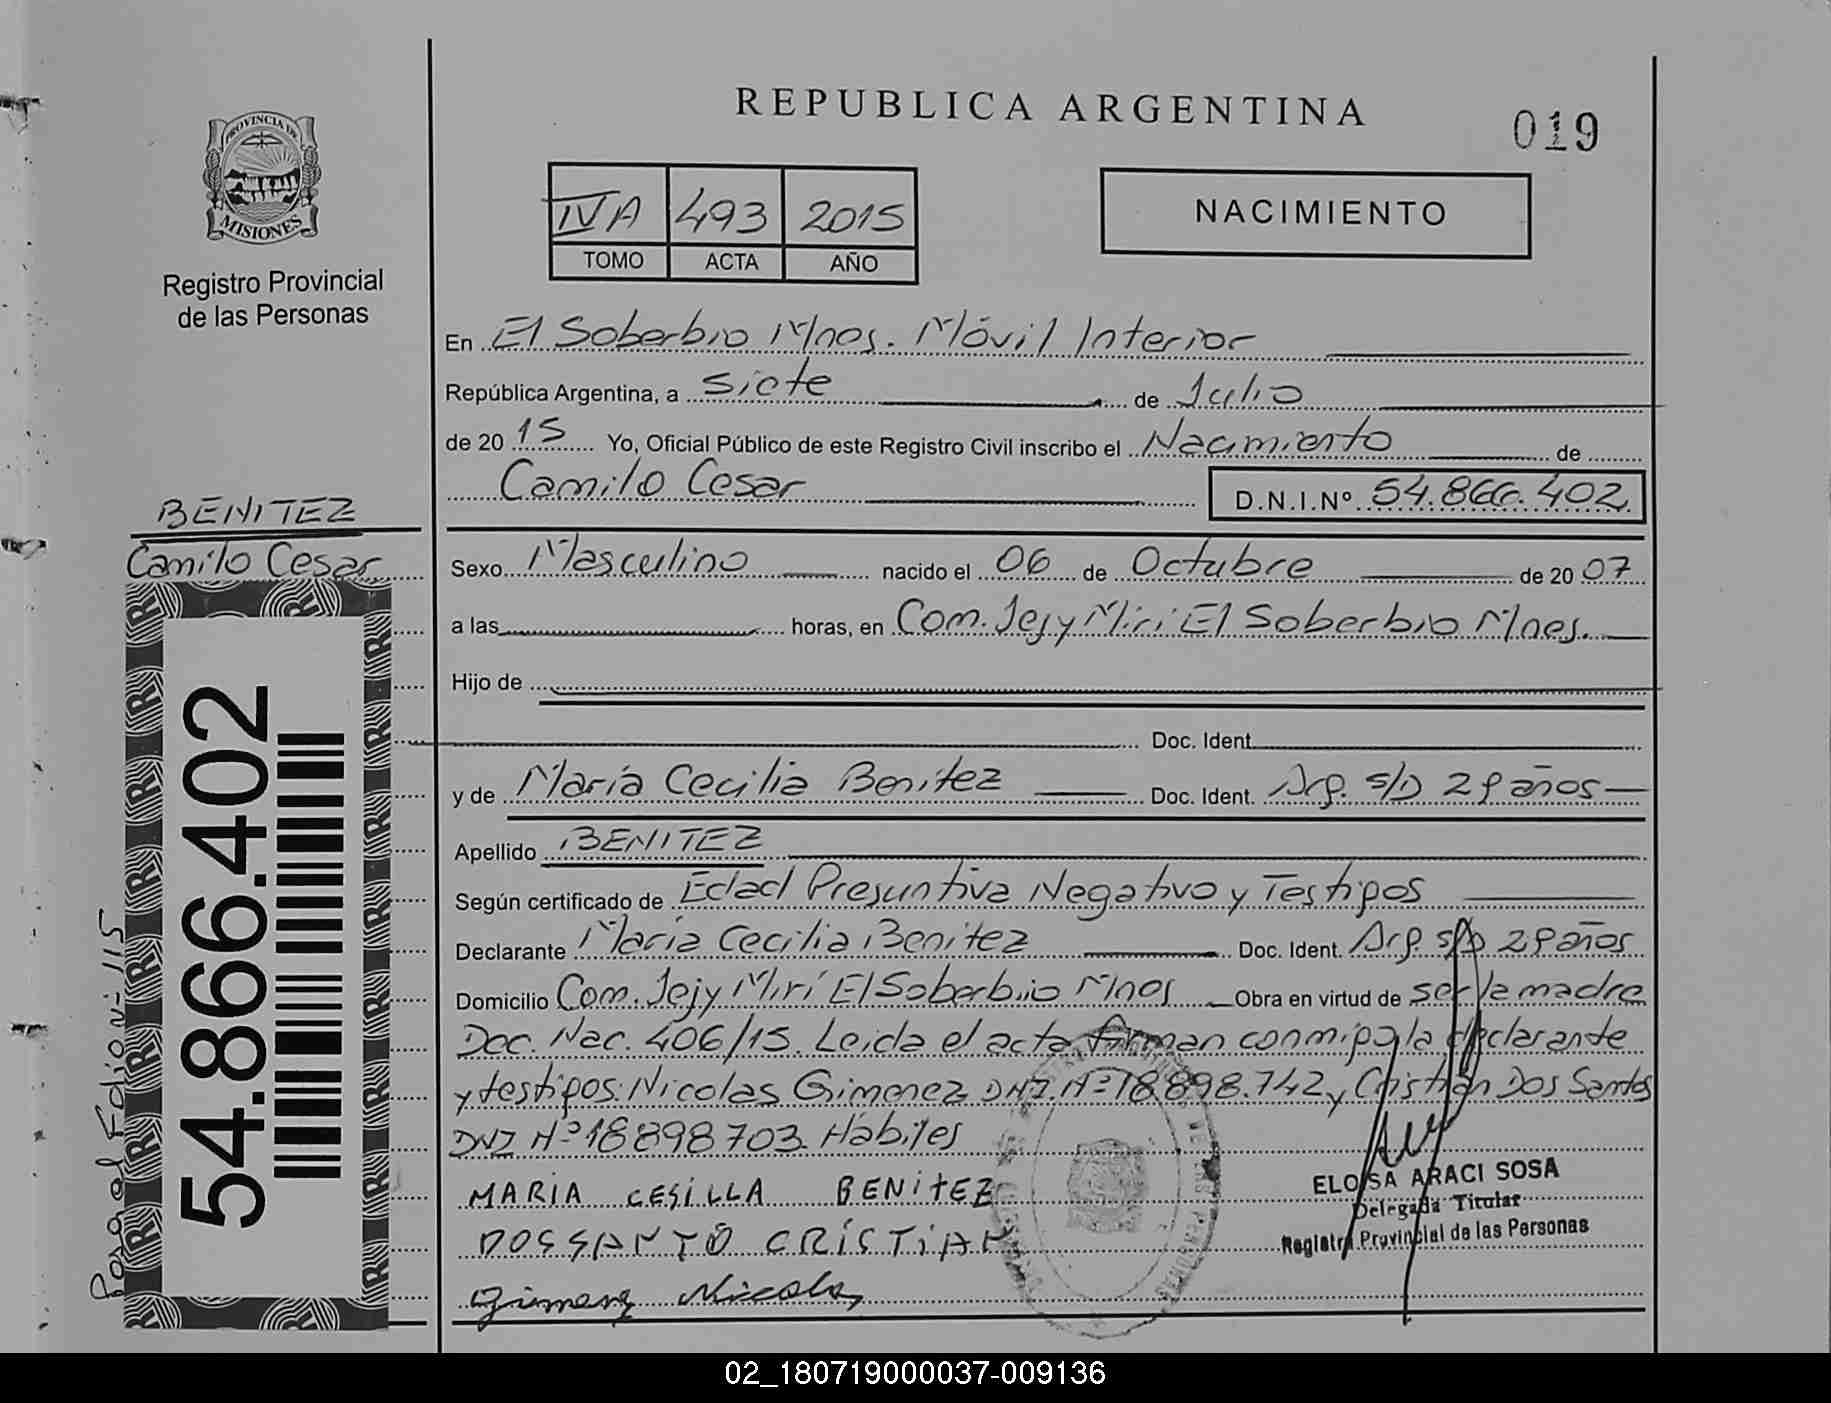 REPUBLICA ARGENTINA
019
PROVINCIA DE
MISIONES
Registro Provincial
de las Personas
IVA 493 2015
TOMO ACTA AÑO
NACIMIENTO
En El Soberbio Mnes. Móvil Interior
República Argentina, a siete de Julio
de 20 15 Yo, Oficial Público de este Registro Civil inscribo el Nacimiento de
Camilo Cesar D.N.I.Nº 54.866.402
BENITEZ
Camilo Cesar
54.866.402
Sexo Masculino nacido el 06 de Octubre de 20 07
a las horas, en Com. Jejy Miri El Soberbio Mnes.
Hijo de
Doc. Ident.
y de María Cecilia Benitez Doc. Ident. Arg. s/D 29 años
Apellido BENITEZ
Según certificado de Edad Presuntiva Negativo y Testigos
Declarante María Cecilia Benitez Doc. Ident. Arg. s/D 29 años
Domicilio Com. Jejy Miri El Soberbio Mnes Obra en virtud de ser la madre
Doc. Nac. 406/15. Leida el acta firman conmigo la declarante
y testigos: Nicolas Gimenez DNI. Nº 18.898.742 y Cristian Dos Santos
DNI Nº 18898703. Hábiles
MARIA CESILLA BENITEZ
DOSSANTO CRISTIAN
Gimenez Nicolas
ELOISA ARACI SOSA
Delegada Titular
Registro Provincial de las Personas
02_180719000037-009136